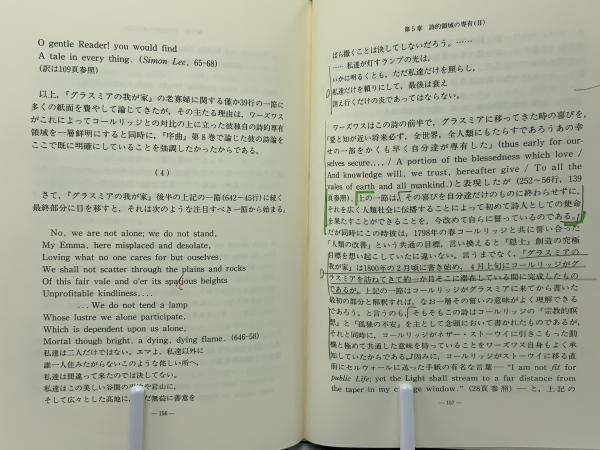 O gentle Reader! you would find
A tale in every thing. (Simon Lee, 65-68)
(訳は109頁参照)
以上,『グラスミアの我が家』の老寡婦に関する僅か39行の一節に
多くの紙面を費やして論じてきたが, その主たる理由は, ワーズワス
がこれによってコールリッジとの対比の上に立った彼独自の詩的専有
領域を一層鮮明にすると同時に,『序曲』第8巻で論じた彼の詩論を
ここで既に明確にしていることを強調したかったからである。
(4)
さて,『グラスミアの我が家』後半の上記の一節(642-45行)に続く
最終部分に目を移すと, それは次のような注目すべき一節から始まる。
No, we are not alone; we do not stand,
My Emma, here misplaced and desolate,
Loving what no one cares for but ouselves.
We shall not scatter through the plains and rocks
Of this fair vale and o'er its spatious heights
Unprofitable kindliness....
... We do not tend a lamp
Whose lustre we alone participate,
Which is dependent upon us alone,
Mortal though bright, a dying, dying flame. (646-58)
私達は二人だけではない。エマよ, 私達以外に
誰一人住みたがらないこのような侘しい所へ,
私達は間違って来たのでは決してない。
私達はこの美しい谷間の や岩山に,
そして広々とした高地に, だ無益に善意を
— 156 —
第5章 詩的領域の専有(II)
ばら撒くことは決してしないだろう。……
…… 私達が灯すランプの光は,
いかに明るくとも, ただ私達だけを照らし,
私達だけを頼りにして, 最後は衰え
消え行くだけの炎であってはならない。
ワーズワスはこの詩の前半で, グラスミアに移ってきた時の喜びを,
「愛と知が近い将来必ず, 全世界, 全人類にもたらすであろうあの幸
せの一部をかくも早く自分達が専有した」(thus early for our-
selves secure.... / A portion of the blessedness which love /
And knowledge will, we trust, hereafter give / To all the
vales of earth and all mankind.) と表現したが (252~56行, 139
頁参照), 上の一節は, その喜びを自分達だけのものに終わらせずに,
それを広く人類社会に伝播することによって初めて詩人としての使命
を果たすことができることを, 今改めて自らに誓っているのである。
だが同時にこの時彼は, 1798年の春コールリッジと共に誓い合った
「人類の改善」という共通の目標, 言い換えると『隠士』創造の究極
目標を想い起こしていたに違いない。言うまでなく,『グラスミアの
我が家』は1800年の2月頃に書き始め, 4月上旬にコールリッジがグ
ラスミアを訪ねてきて約一か月そこに滞在している間に完成したもの
であるが, 上記の一節はコールリッジがグラスミアに来てから書いた
最初の部分と解釈すれば, なお一層その誓いの意味がよく理解できる
であろう。と言うのも, そもそもこの詩はコールリッジの『宗教的瞑
想』と『孤独の不安』を主として念頭において書かれたものであるが,
それと同時に, コールリッジがネザー・ストウイに引きこもった動
機と極めて共通した意味を持っていることをワーズワス自身もよく承
知していたからである。因みに, コールリッジがストーウイに移る直
前にセルウォールに送った手紙の有名な言葉—"I am not fit for
public Life; yet the Light shall stream to a far distance from
the taper in my window." (28頁参照)—と, 上記の
— 157 —